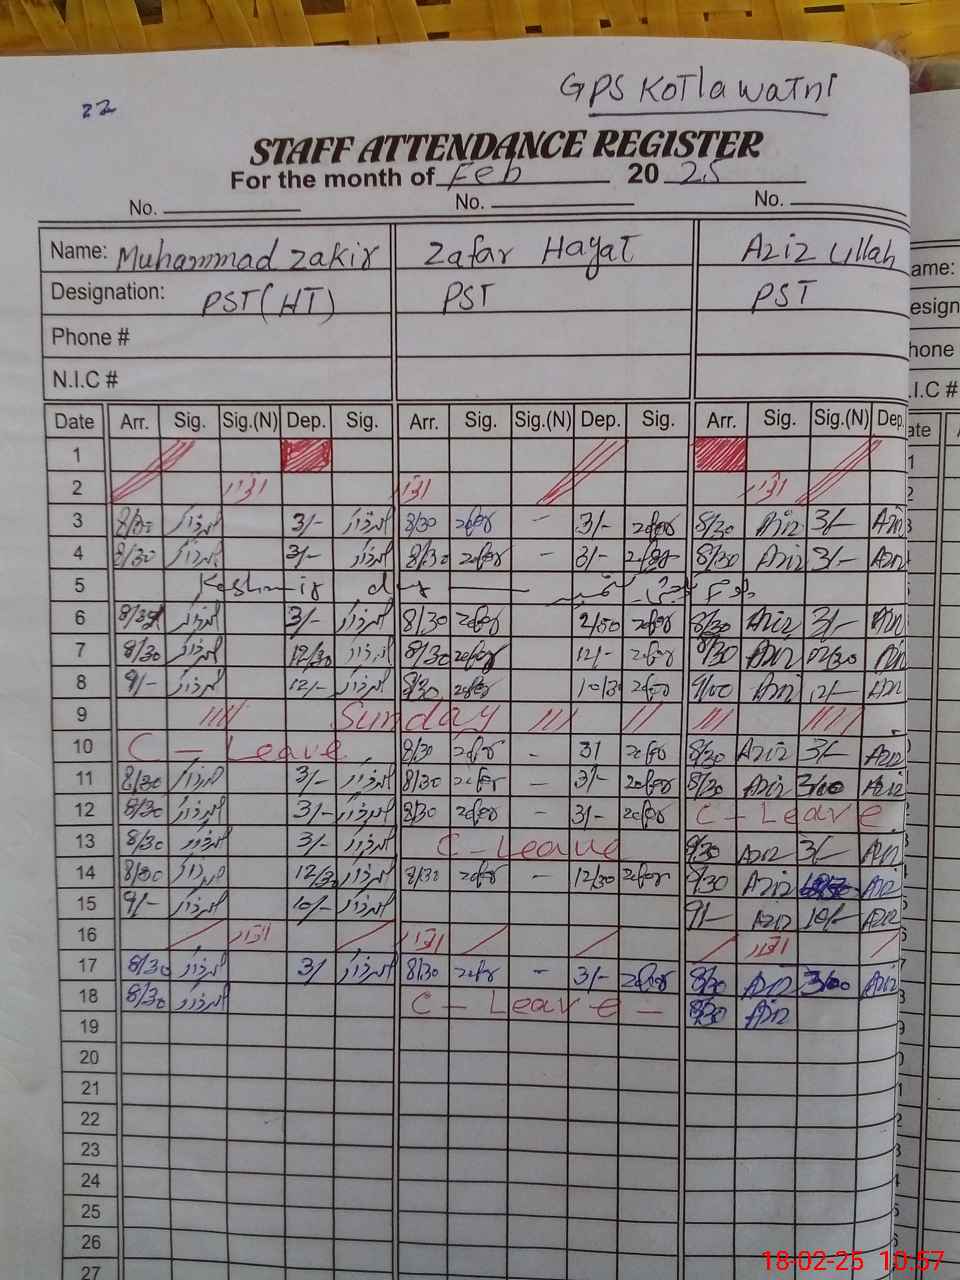 22
GPS Kotla watni
STAFF ATTENDANCE REGISTER
For the month of Feb 20 25
No. No. No.
Name: Muhammad Zakir Zafar Hayat Aziz Ullah ame:
Designation: PST(HT) PST PST esign
Phone # hone
N.I.C # .I.C #
Date Arr. Sig. Sig.(N) Dep. Sig. Arr. Sig. Sig.(N) Dep. Sig. Arr. Sig. Sig.(N) Dep. ate
1
2 اتوار اتوار اتوار
3 8/30 3/- 8/30 zafar - 3/- zafar 8/30 Aziz 3/- Aziz
4 8/30 3/- 8/30 zafar - 3/- zafar 8/30 Aziz 3/- Aziz
5 Kashmir day
6 8/30 3/- 8/30 zafar 2/00 zafar 8/30 Aziz 3/- Aziz
7 8/30 12/30 8/30 zafar 12/- zafar 8/30 Aziz 12/30 Aziz
8 9/- 12/- 8/30 zafar 10/30 zafar 9/00 Aziz 12/- Aziz
9 Sunday
10 C - Leave 8/30 zafar - 3/ zafar 8/30 Aziz 3/- Aziz
11 8/30 3/- 8/30 zafar - 3/- zafar 8/30 Aziz 3/00 Aziz
12 8/30 3/- 8/30 zafar - 3/- zafar C - Leave
13 8/30 3/- C - Leave 8/30 Aziz 3/- Aziz
14 8/30 12/30 8/30 zafar - 12/30 zafar 8/30 Aziz Aziz
15 9/- 10/- 9/- Aziz 10/- Aziz
16 اتوار اتوار اتوار
17 8/30 3/ 8/30 zafar - 3/- zafar 8/30 Aziz 3/00 Aziz
18 8/30 C - Leave - 8/30 Aziz
19
20
21
22
23
24
25
26
27
18-02-25 10:57